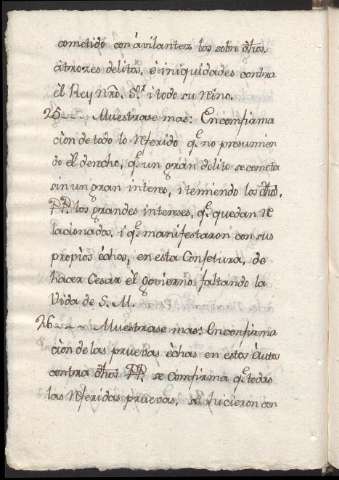 cometido con avilantez los sobre dhos
atrozes delitos, è iniquidades contra
el Rey Nro. Sr. i todo su Reino.
25 Muestrase mas: En confirma
cion de todo lo Referido q.e no presumien
do el derecho, q.e un gran delito se cometa
sin un gran interes, i teniendo los dhos,
PP. los grandes intereses, q.e quedan Re
lacionados, i q.e manifestaron con sus
propios échos, en esta Conjetura, de
hacer Cesar el govierno faltando la
Vida de S. M.
26 Muestrase mas: En confirma
cion de las pruevas échas en estos Autos
contra dhos PP. se Confirma q.e todas
las Referidas pruevas, se hicieron con